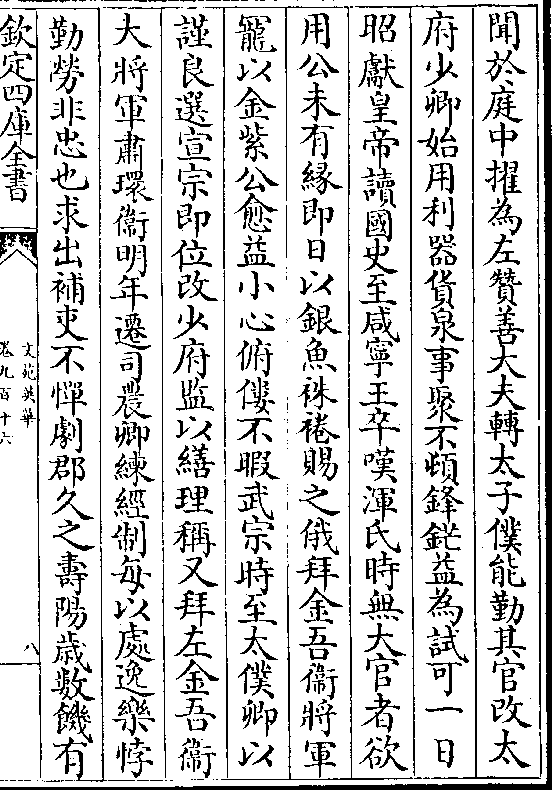 聞於庭中擢為左贊善大夫轉太子僕能勤其官改太
府少卿始用利器貨泉事聚不頓鋒鋩益為試可一日
昭獻皇帝讀國史至咸寧王卒嘆渾氏時無大官者欲
用公未有縁即日以銀魚袾裷賜之俄拜金吾衛將軍
寵以金紫公愈益小心俯僂不暇武宗時至太僕卿以
謹良選宣宗即位改少府監以繕理稱又拜左金吾衛
大將軍肅環衛明年遷司農卿練經制每以處逸樂悖
勤勞非忠也求出補吏不憚劇郡久之壽陽歳數饑有
欽定四庫全書
文苑英華
卷九百十六
八